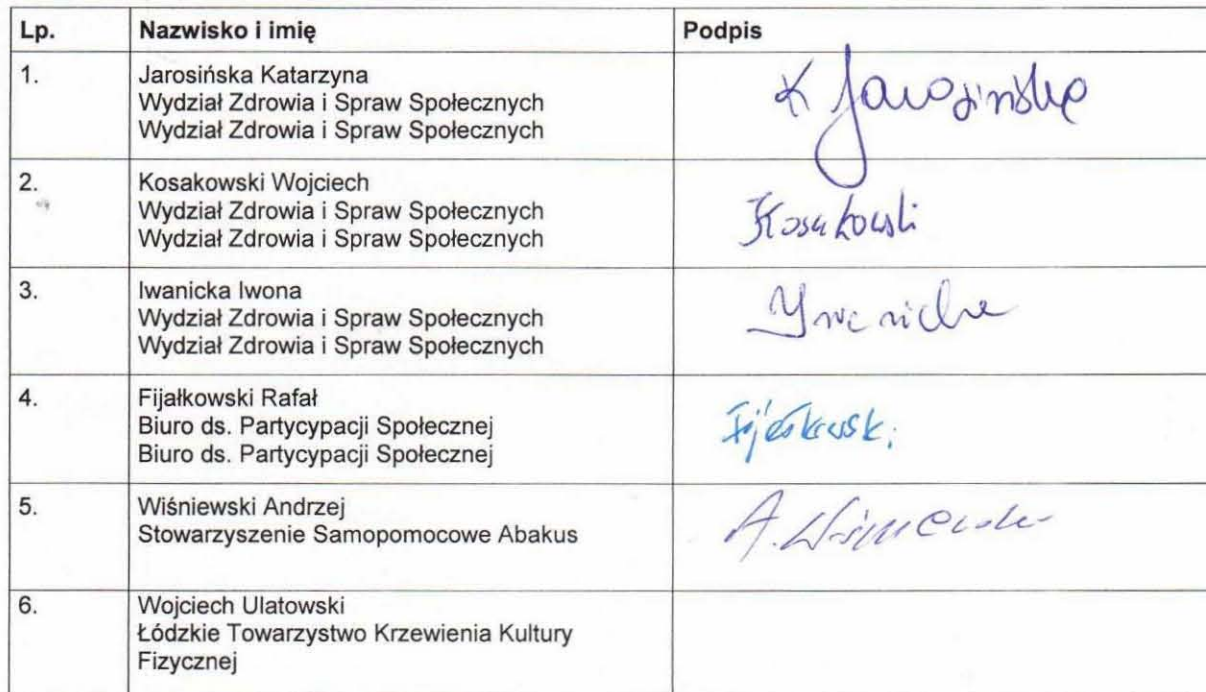 Lp. Nazwisko i imię Podpis
1. Jarosińska Katarzyna
Wydział Zdrowia i Spraw Społecznych
Wydział Zdrowia i Spraw Społecznych
K Jarosińska
2. Kosakowski Wojciech
Wydział Zdrowia i Spraw Społecznych
Wydział Zdrowia i Spraw Społecznych
Kosakowski
3. Iwanicka Iwona
Wydział Zdrowia i Spraw Społecznych
Wydział Zdrowia i Spraw Społecznych
Iwanicka
4. Fijałkowski Rafał
Biuro ds. Partycypacji Społecznej
Biuro ds. Partycypacji Społecznej
Fijałkowski
5. Wiśniewski Andrzej
Stowarzyszenie Samopomocowe Abakus
A. Wiśniewski
6. Wojciech Ulatowski
Łódzkie Towarzystwo Krzewienia Kultury
Fizycznej